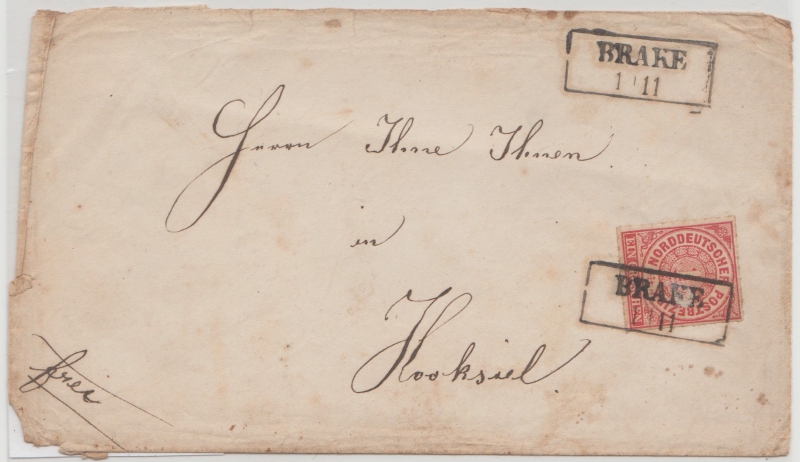 BRAKE
1 11
Herrn Ihne Ihnen
in
Hooksiel.
frei
NORDDEUTSCHER POSTBEZ
EIN
BRAKE
11